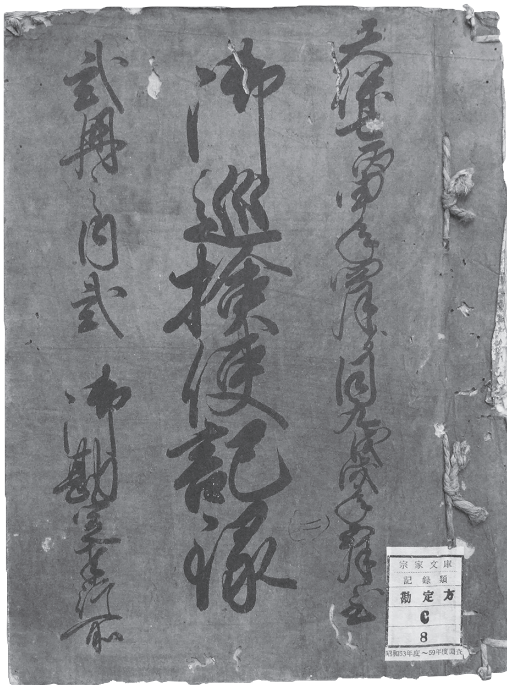 天保七丙申年四月ゟ同九戊戌年五月至
御巡検使記録
(二)
弐冊之内弐
御勘定奉行所
宗家文庫
記録類
勘定方
C
8
昭和53年度〜59年度調査